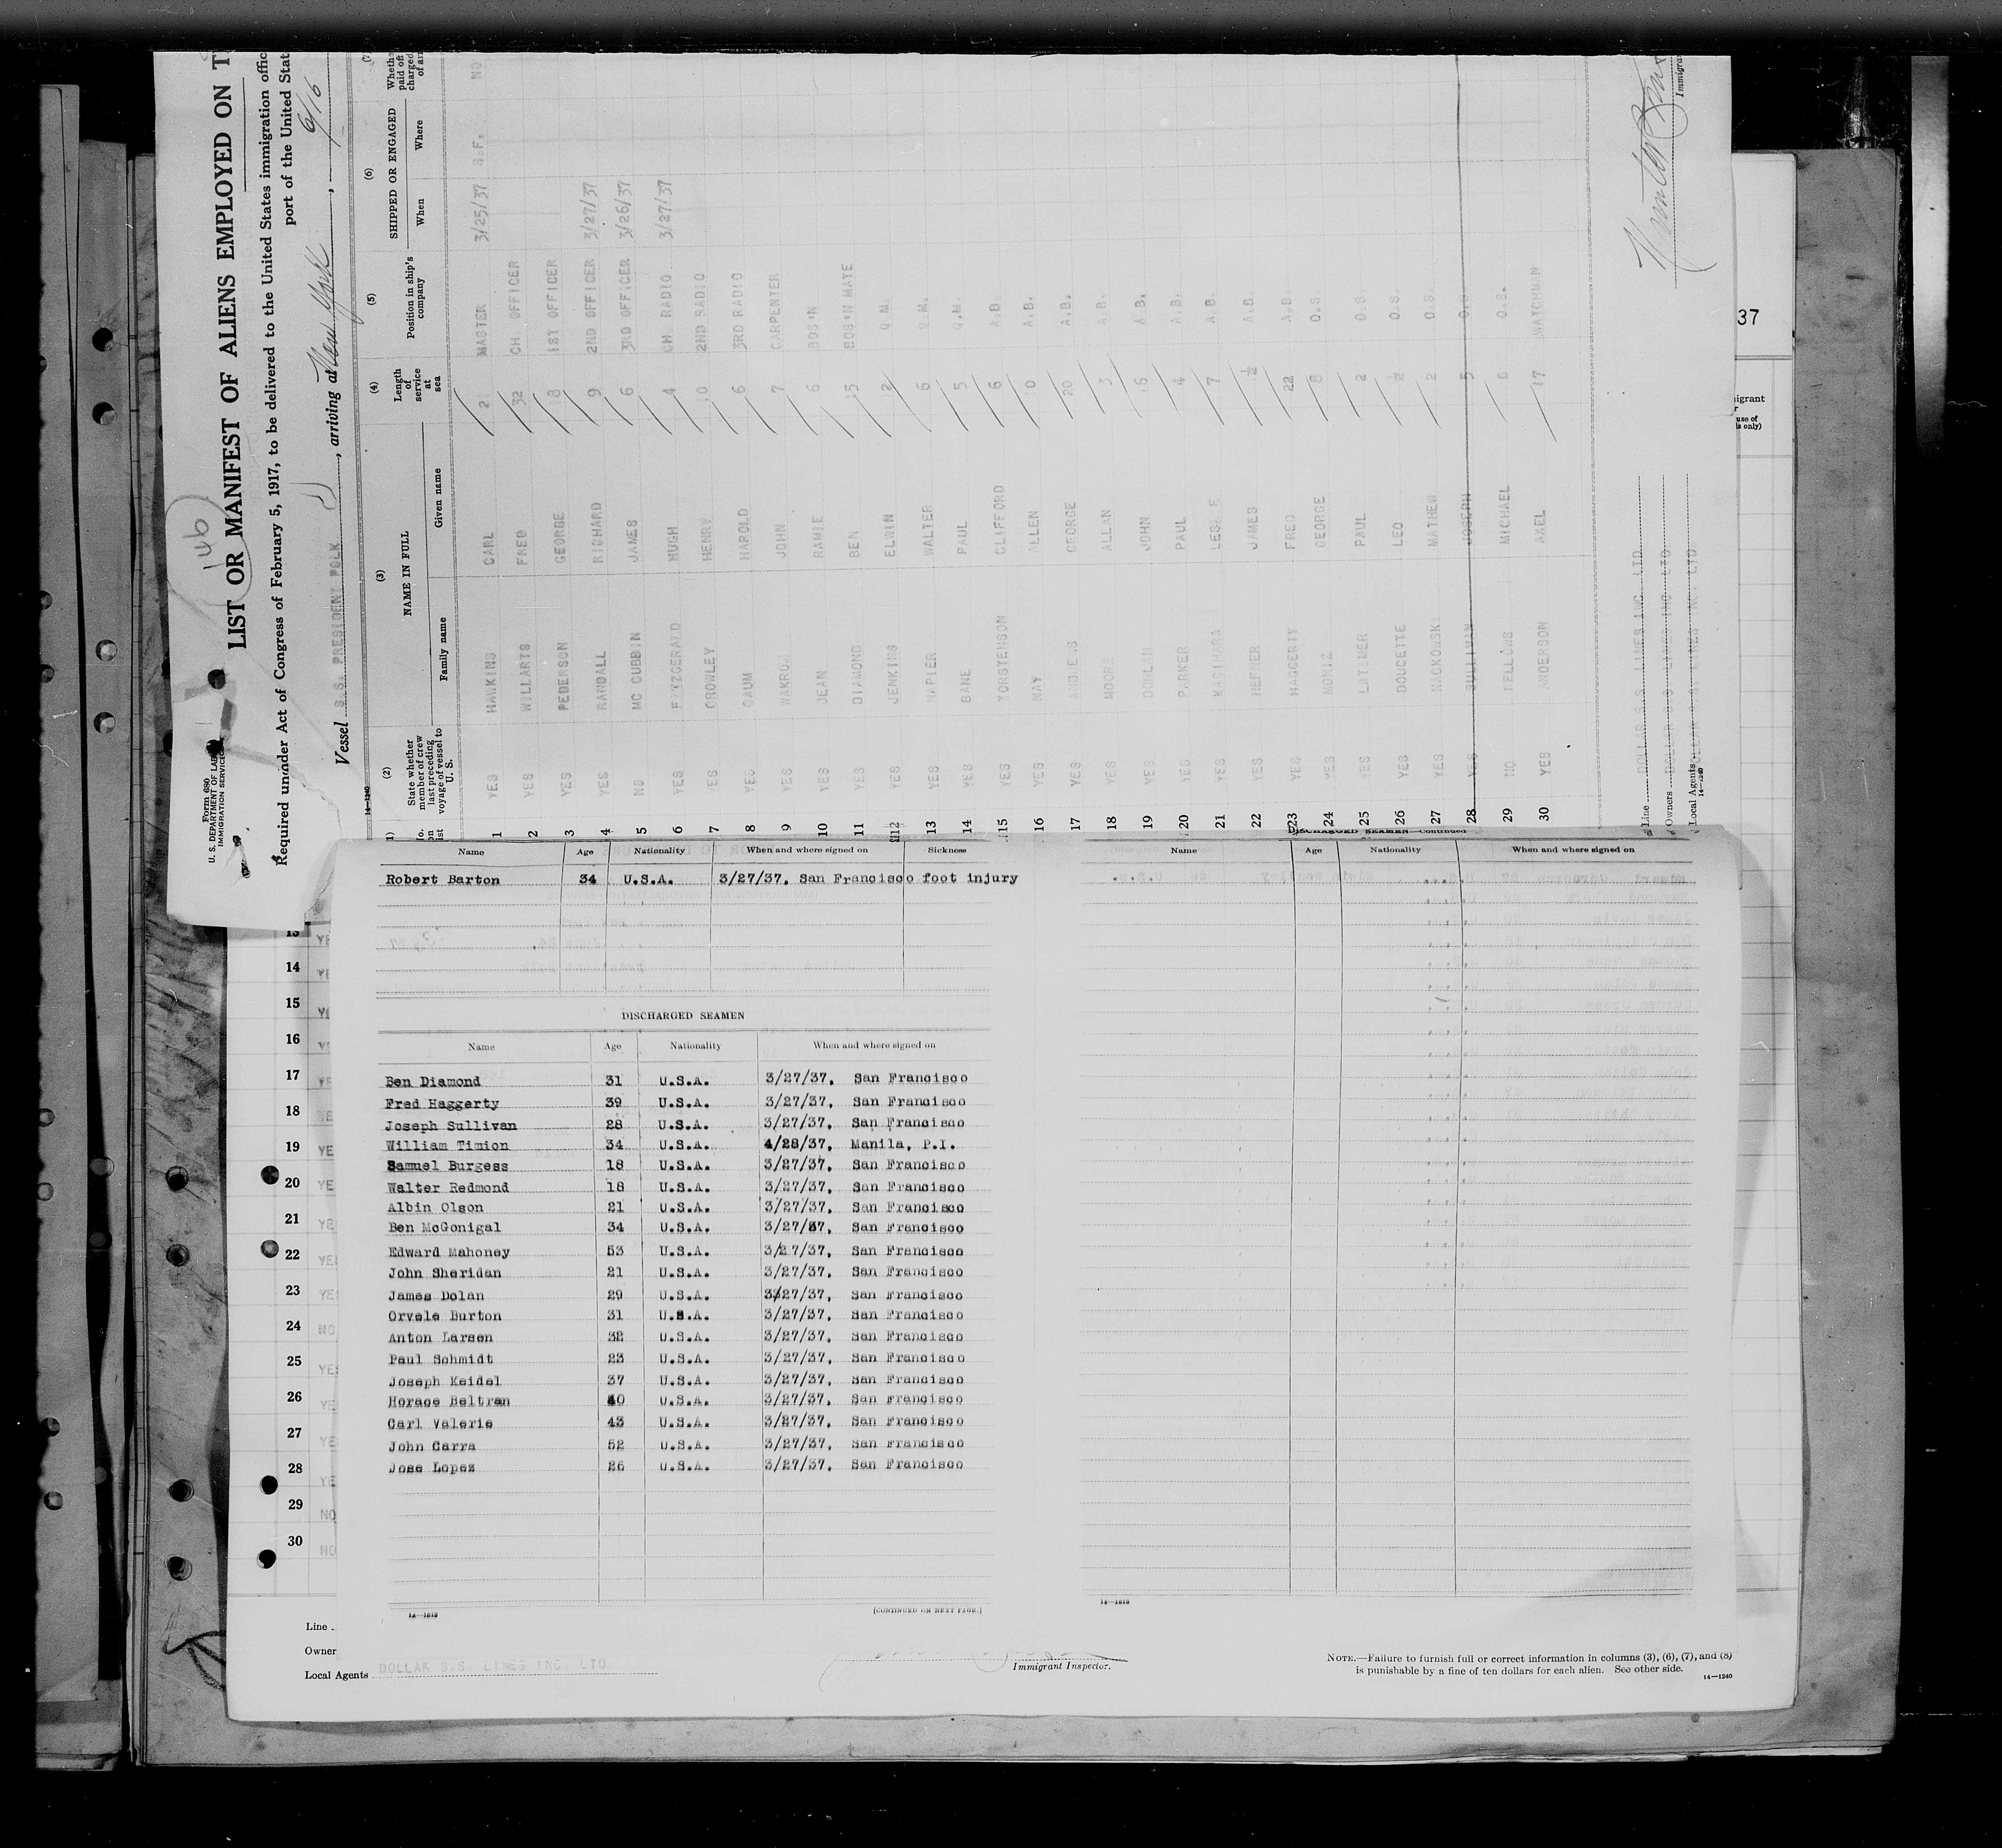 146
Form 680
U. S. DEPARTMENT OF LAB
IMMIGRATION SERVICE
LIST OR MANIFEST OF ALIENS EMPLOYED ON T
Required under Act of Congress of February 5, 1917, to be delivered to the United States immigration offic
port of the United Stat
Vessel S.S. PRESIDENT POLK, arriving at New York, 6/16
14—1240
(2) (3) (4) (5) (6)
State whether member of crew last preceding voyage of vessel to U. S.
NAME IN FULL
Family name Given name
Length of service at sea
Position in ship's company
SHIPPED OR ENGAGED
When Where
1 YES HAWKINS CARL 2 MASTER 3/25/37 S.F. NO
2 YES WILLARTS FRED 32 CH OFFICER
3 YES PEDERSON GEORGE 8 1ST OFFICER
4 YES RANDALL RICHARD 9 2ND OFFICER 3/27/37
5 NO MC CUBBIN JAMES 6 3RD OFFICER 3/26/37
6 YES FITZGERALD HUGH 4 CH. RADIO 3/27/37
7 YES CROWLEY HENRY 10 2ND RADIO
8 YES GAUM HAROLD 6 3RD RADIO
9 YES JOHN 7 CARPENTER
10 YES DEAN RAMIE 6 BOS'N
11 YES DIAMOND BEN 15 BOS'N MATE
12 YES JENKINS ELWIN 2 Q.M.
13 YES NAPIER WALTER 6 Q.M.
14 YES BANE PAUL 5 Q.M.
15 YES TORSTENSON CLIFFORD 6 A.B.
16 YES MAY ALLEN A.B.
17 YES GEORGE 20 A.B.
18 YES MOORE ALLAN 3 A.B.
19 YES DONLAN JOHN A.B.
20 YES PARKER PAUL 4 A.B.
21 YES LESLIE 7 A.B.
22 YES HEFNER JAMES ½ A.B.
23 YES HAGGERTY FRED 22 A.B.
24 YES MONIZ GEORGE 8 O.S.
25 YES LATIMER PAUL 2 O.S.
26 YES DOUCETTE LEO ½ O.S.
27 YES MACKOWSKI MATHEW 2 O.S.
28 YES SULLIVAN JOSEPH 5 O.S.
29 NO FELLOWS MICHAEL 0 O.S.
30 YES ANDERSON AXEL 17 WATCHMAN
Line DOLLAR S.S. LINES INC. LTD.
Owners DOLLAR S.S. LINES INC LTD.
Local Agents DOLLAR S.S. LINES INC. LTD.
14—1240
37
Name Age Nationality When and where signed on Sickness
Robert Barton 34 U.S.A. 3/27/37, San Francisco foot injury
DISCHARGED SEAMEN
Name Age Nationality When and where signed on
Ben Diamond 31 U.S.A. 3/27/37, San Francisco
Fred Haggerty 39 U.S.A. 3/27/37, San Francisco
Joseph Sullivan 28 U.S.A. 3/27/37, San Francisco
William Timion 34 U.S.A. 4/28/37, Manila, P.I.
Samuel Burgess 18 U.S.A. 3/27/37, San Francisco
Walter Redmond 18 U.S.A. 3/27/37, San Francisco
Albin Olson 21 U.S.A. 3/27/37, San Francisco
Ben McGonigal 34 U.S.A. 3/27/37, San Francisco
Edward Mahoney 53 U.S.A. 3/27/37, San Francisco
John Sheridan 21 U.S.A. 3/27/37, San Francisco
James Dolan 29 U.S.A. 3/27/37, San Francisco
Orvele Burton 31 U.S.A. 3/27/37, San Francisco
Anton Larsen 32 U.S.A. 3/27/37, San Francisco
Paul Schmidt 23 U.S.A. 3/27/37, San Francisco
Joseph Keidel 37 U.S.A. 3/27/37, San Francisco
Horace Beltran 40 U.S.A. 3/27/37, San Francisco
Carl Valerie 43 U.S.A. 3/27/37, San Francisco
John Carra 52 U.S.A. 3/27/37, San Francisco
Jose Lopez 26 U.S.A. 3/27/37, San Francisco
14—1813
[CONTINUED ON NEXT PAGE.]
DISCHARGED SEAMEN—Continued
Name Age Nationality When and where signed on
14—1813
13 YE
14 YE
15 YE
16 YE
17 YE
18
19 YE
20 YE
21 YE
22 YE
23 YE
24 NO
25 YE
26 YE
27 YE
28 YE
29 NO
30 NO
Line
Owner
Local Agents DOLLAR S.S. LINES INC. LTD.
Immigrant Inspector.
NOTE.—Failure to furnish full or correct information in columns (3), (6), (7), and (8)
is punishable by a fine of ten dollars for each alien. See other side.
14—1240